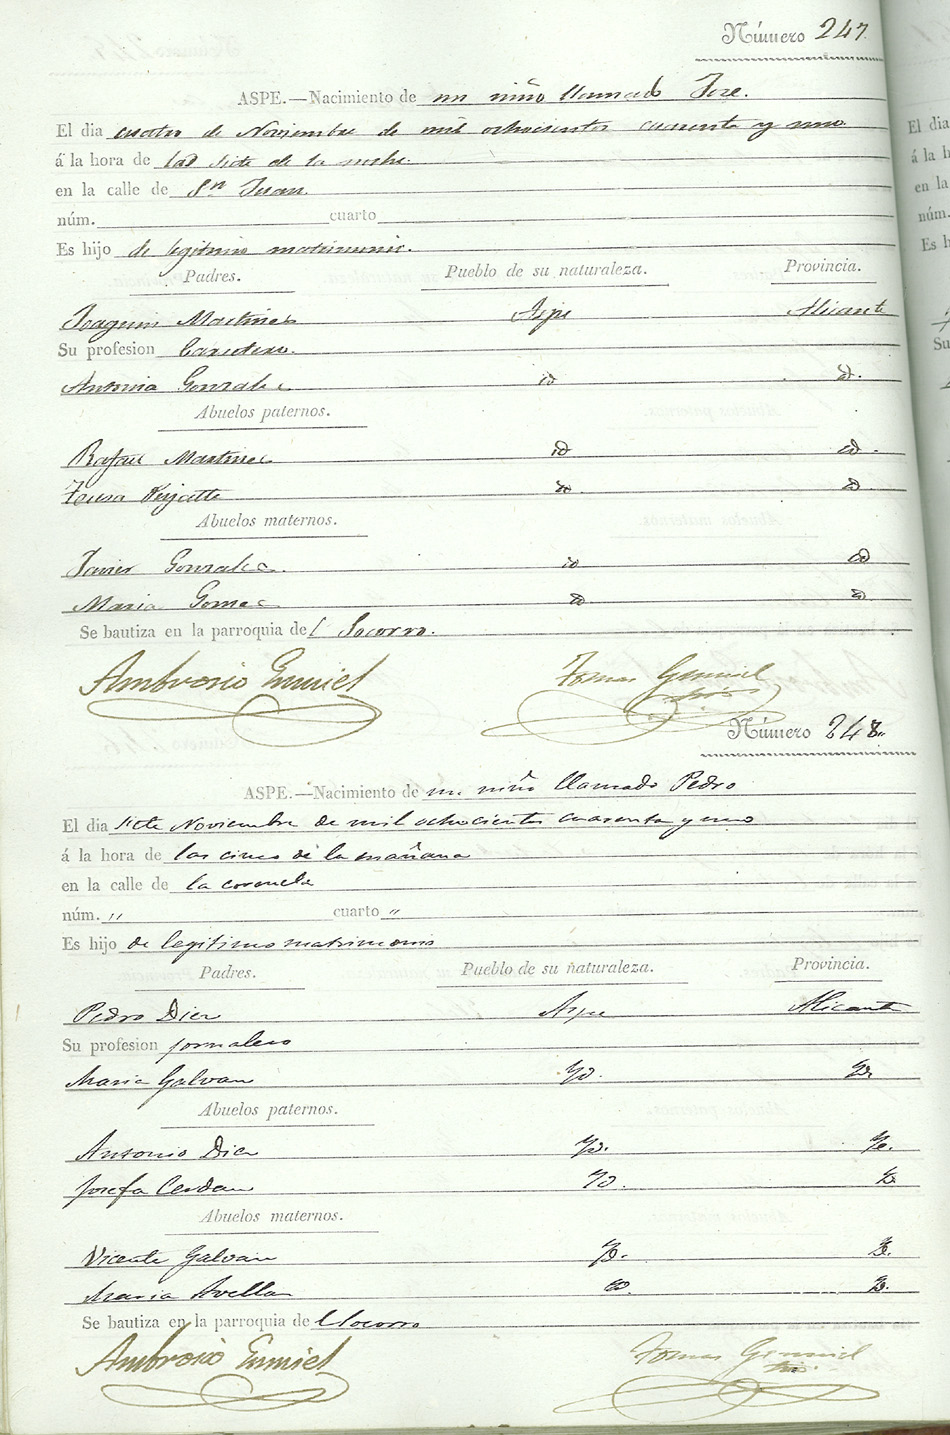 Número 247.
ASPE.—Nacimiento de un niño llamado Jose.
El dia cuatro de Noviembre de mil ochocientos cuarenta y uno
á la hora de las siete de la noche.
en la calle de Sn Juan.
núm. cuarto
Es hijo de legitimo matrimonio.
Padres. Pueblo de su naturaleza. Provincia.
Joaquin Martinez Aspe Alicante
Su profesion
Antonia Gonzalez id id.
Abuelos paternos.
Rafael Martinez id id.
Teresa id. id
Abuelos maternos.
Javier Gonzalez. id id
Maria Gomez id id
Se bautiza en la parroquia del Socorro.
Ambrosio Tomas
Número 248
ASPE.—Nacimiento de un niño llamado Pedro
El dia siete Noviembre de mil ochocientos cuarenta y uno
á la hora de las cinco de la mañana
en la calle de la coronela
núm. " cuarto "
Es hijo de legitimo matrimonio
Padres. Pueblo de su naturaleza. Provincia.
Pedro Diez Aspe Alicante
Su profesion jornalero
Maria Galvan Yd. Yd
Abuelos paternos.
Antonio Diez Yd. Yd.
Josefa Cerdan Yd. Yd.
Abuelos maternos.
Vicente Galvan Yd. Yd.
Maria Avellan Yd. Yd.
Se bautiza en la parroquia del Socorro
Ambrosio Tomas